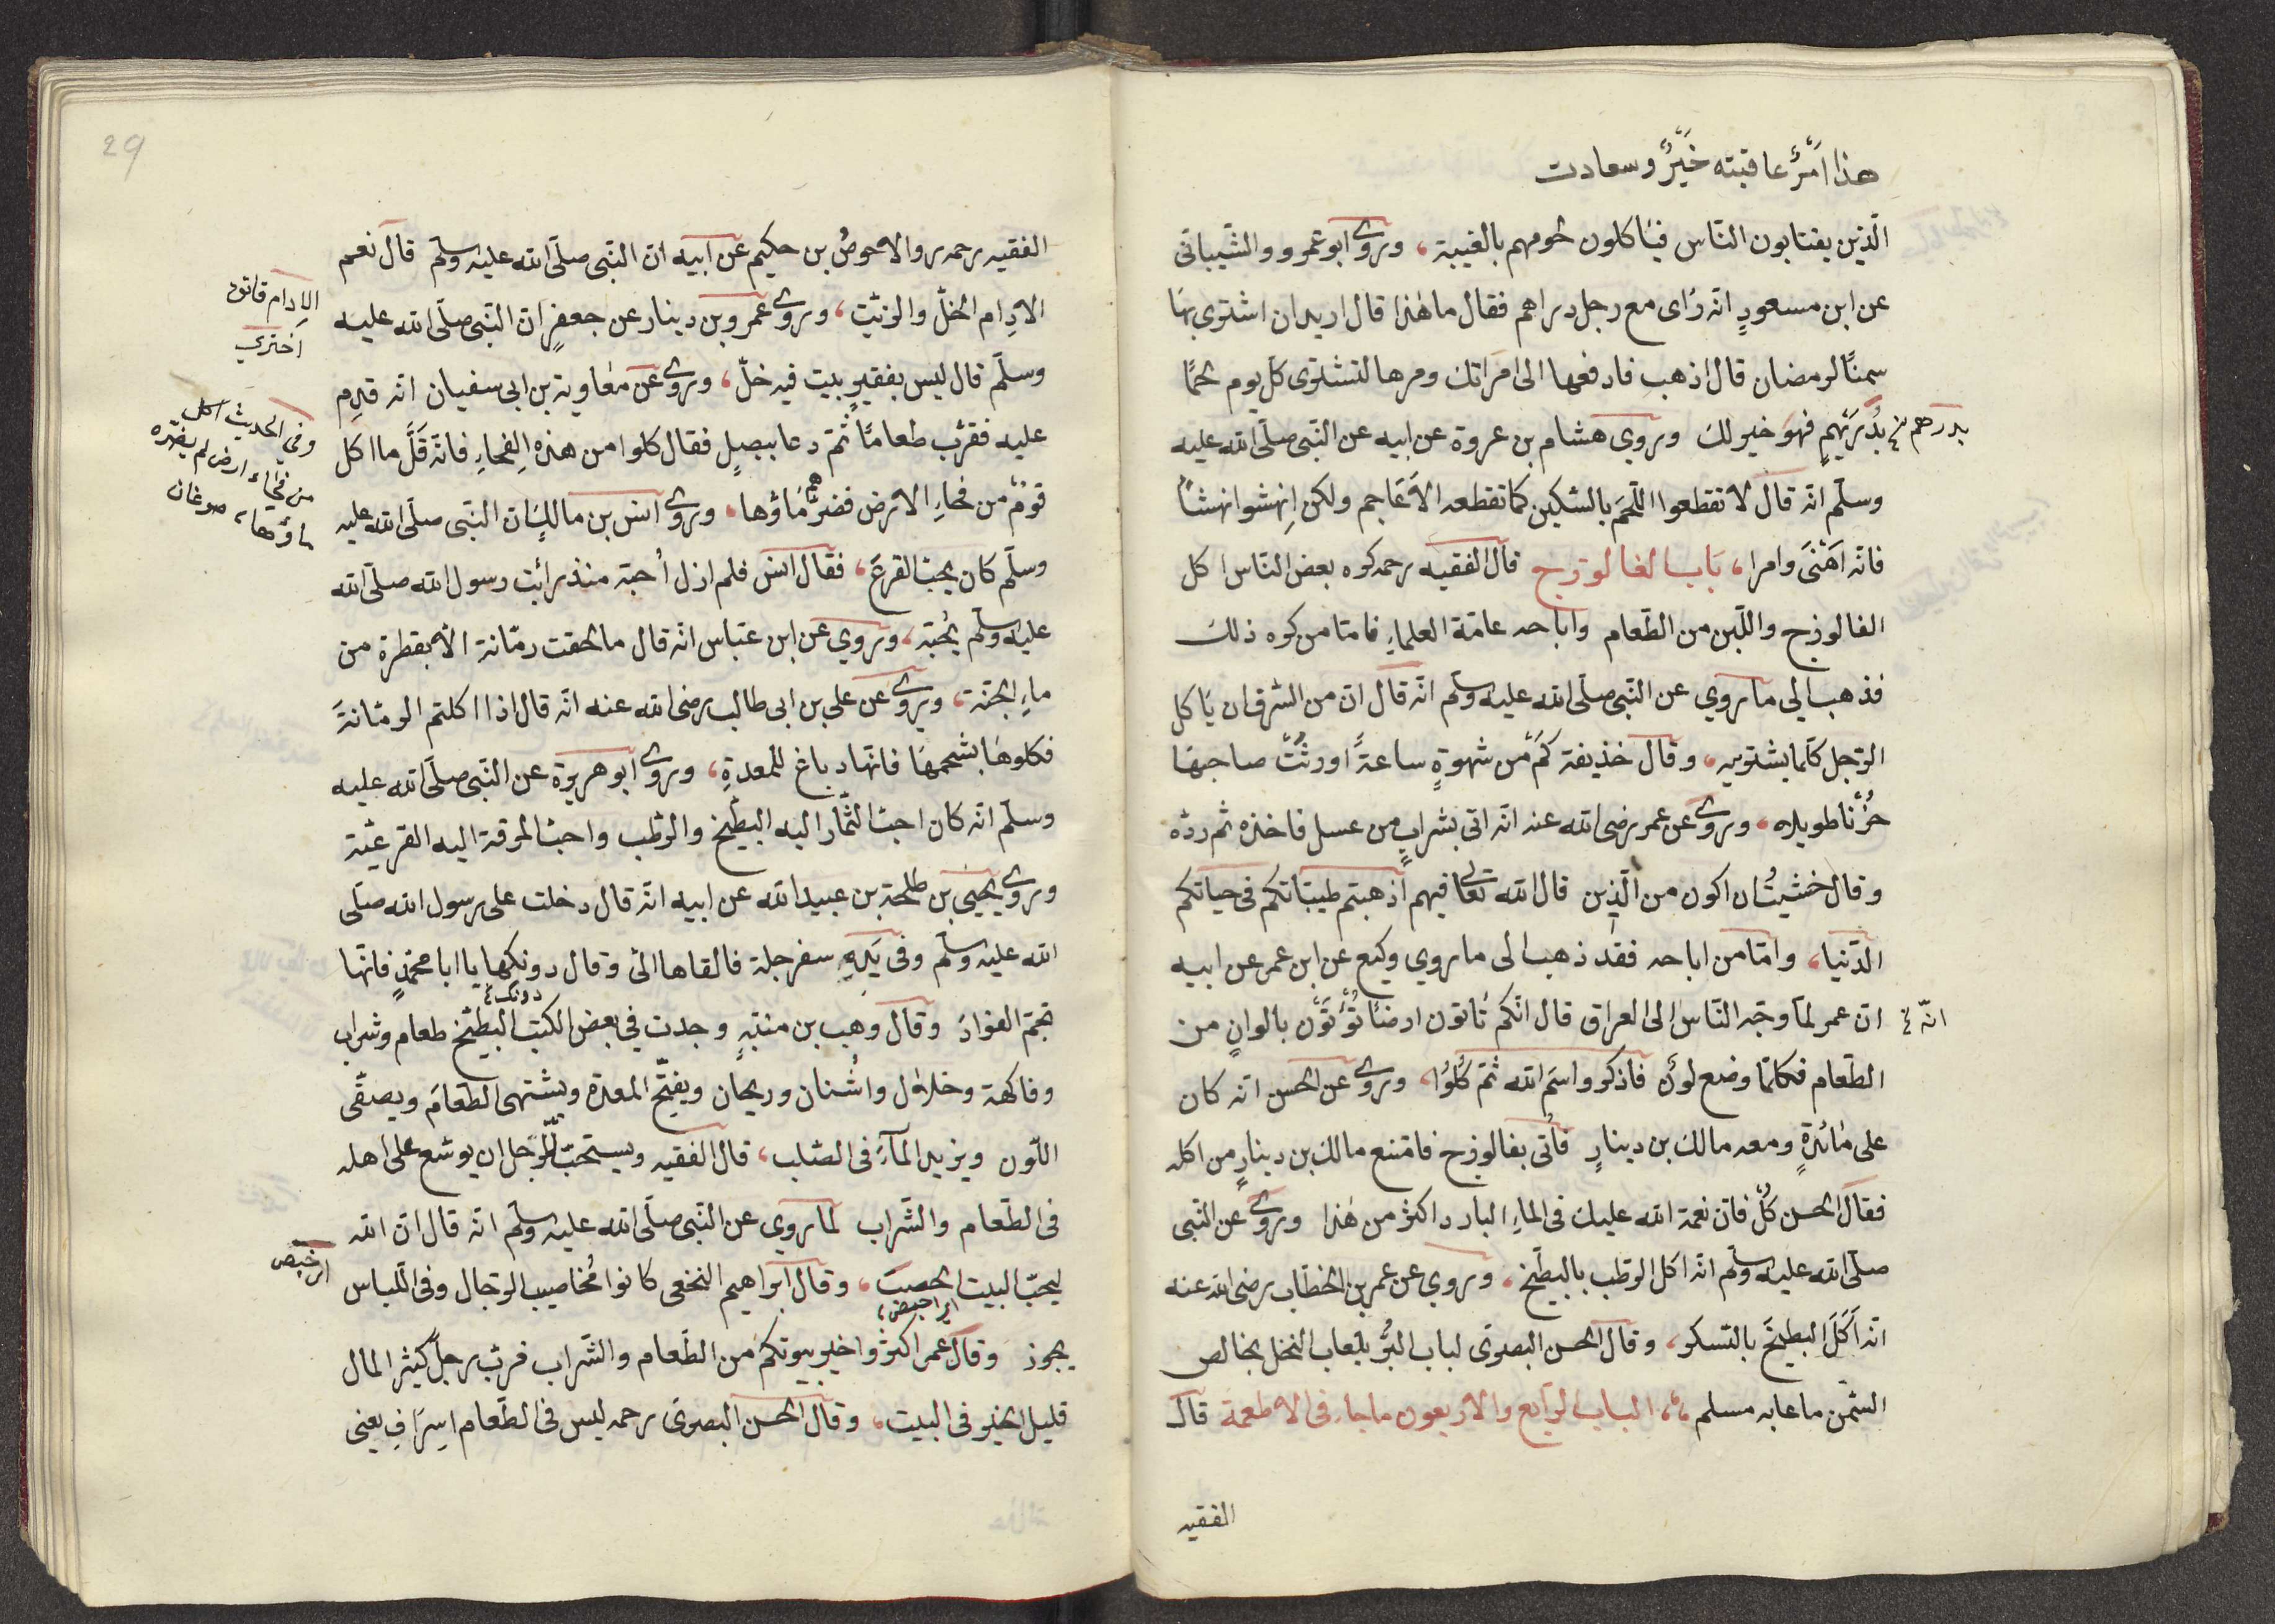 هذا امر عاقبته خير وسعادت
الّذين يغتابون النّاس فيأكلون لحومهم بالغيبة، وروى ابو عمرو والشّيبانى
عن ابن مسعودٍ انّه رأى مع رجل دراهم فقال ما هٰذا قال اريد ان اشترى بها
سمنًا لرمضان قال اذهب فادفعها الى امرأتك ومرها لتشترى كلّ يوم لحمًا
بدرهم نخ
بُدُرَيْهِمٍ فهو خير لك وروى هشام بن عروة عن ابيه عن النّبى صلّى الله عليه
وسلّم انّه قال لا تقطعوا اللّحم بالسّكين كما تقطعه الاَعَاجم ولكن اِنهشوا نهشًا
فانّه اَهَنْىَ وامرا، بَاب الفالوذج قال الفقيه رحمه كره بعض النّاس اكل
الفالوذج واللّين من الطّعام واباحه عامّة العلماءِ فامّا من كره ذلك
فذهب الي ما روي عن النّبى صلّى الله عليه وسلّم انّه قال انّ من السّرف ان يَاكل
الرّجل كلّما يشتهيه، وقال حذيفة كَمْ من شهوةٍ ساعةً اورثَتْ صاحبها
حُزْنًا طويلا، وروى عن عمر رضى الله عنه انّه اتى بشرابٍ من عسل فاخذه ثم ردّه
وقال خشيتُ ان اكون من الّذين قال الله تعالى فيهم اَذهبتم طيّباتكم فى حياتكم
الدّنيا، وامّا من اباحه فقد ذهب الى ما روي وكيع عن ابن عمر عن ابيه
انّه نخ
انّ عمر لمّا وجّه النّاس الى العراق قال انّكم تأتون ارضًا تُؤْتَوْن بالوانٍ من
الطّعام فكلّما وضع لونٌ فاذكروا اسم الله ثمّ كُلُوا، وروى عن الحسن انّه كان
على مٰائدةٍ ومعه مالك بن دينارٍ فأتى بفالوذج فامتنع مالك بن دينارٍ من اكله
فقال الحسن كُلْ فانّ نعمة الله عليك فى الماءِ البارد اكثر من هٰذا وروى عن النّبى
صلّى الله عليه وسلّم انّه اكل الرّطب بالبطّيخ، وروي عن عمر بن الخطّاب رضى الله عنه
انّه اَكَلَ البطّيخَ بالسّكر، وقال الحسن البصرى لباب البُرّ بلعاب النحل بخالص
السّمن ما عابه مسلم،، الباب الرّابع والاربعون ما جاء فى الاطعمة قال
الفقيه
29
الفقيه رحمه روى الاحوصُ بن حكيم عن ابيه انّ النّبى صلّى الله عليه وسلّم قال نعم
الادِام الخلّ والزّيت، وروى عمرو بن دينار عن جعفرٍ انّ النّبى صلّى الله عليه
وسلّم قال ليس بفقيرٍ بيت فيه خلّ، وروى عن معٰاوية بن ابى سفيان انّه قدم
عليه فقرّب طعامًا ثُمّ دعا ببصلٍ فقال كلوا من هذه الفحاءِ فانّه قَلَّ ما اكل
قومٌ من فحاءِ الارض فضرّهم مَاؤها، وروى انس بن مالكٍ انّ النّبى صلّى الله عليه
وسلّم كان يحبّ القرعَ، فقال انس فلم ازل اُحبّه منذ رأيت رسول الله صلّى الله
عليه وسلّم يُحبّه، وروي عن ابن عبّاس انّه قال ما لحقت رمّانة الاّ بقطرة من
ماءِ الجنّة، وروى عن على بن ابى طالب رضى الله عنه انّه قال اذا اكلتم الرمّانةَ
فكلوهَا بشحمهَا فانّها دباغ للمعدةِ، وروى ابو هريرة عن النّبى صلّى الله عليه
وسلّم انّه كان احبّ الثّمار اليه البطّيخ والرّطب واحبّ المرقة اليه القرعيّة
وروى يحيىٰ بن طلحة بن عبيد الله عن ابيه انّه قال دخلت على رسول الله صلّى
الله عليه وسلّم وفى يَدِهِ سفرجلة فالقاها الىّ وقال دونكها يا ابا محمّدٍ فانّها
دونك نخ
تجمّ الفوادَ وقال وهب بن منبّهٍ وجدت في بعض الكتب البطّيخ طعام وشراب
وفاكهة وخلال واُشنان وريحان ويفتّح المعدة ويشتهى الطّعامَ ويصفّى
اللّون ويزيد الماَءَ فى الصّلب، قال الفقيه ويستحبّ للرّجل ان يوسّع على اهله
فى الطّعام والشّراب لما روي عن النّبى صلّى الله عليه وسلّم انّه قال انّ الله
ليحبّ البيت الخصب، وقال ابراهيم النخعى كانوا مُخاصيب الرّجال وفى اللّباس
يجوز وقال عمر اكثروا خير بيوتكم من الطّعام والشّراب فربّ رجل كثير المال
قليل الخير فى البيت، وقال الحسن البصرى رحمه ليس فى الطّعام اسراف يعنى
الادام قاتق
اختري
وفي الحديث اكل
من فحاء ارض لم يضرّه
ماؤها،